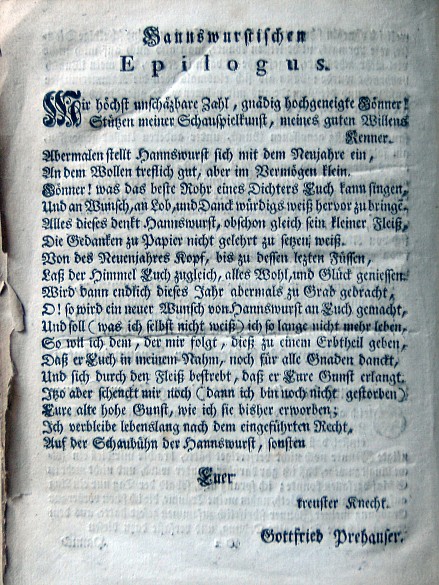 Hannswurstischen
Epilogus.
Mir höchst unschäzbare Zahl, gnädig hochgeneigte Gönner!
Stützen meiner Schauspielkunst, meines guten Willens
Kenner.
Abermalen stellt Hannswurst sich mit dem Neujahre ein,
An dem Wollen treflich gut, aber im Vermögen klein.
Gönner! was das beste Rohr eines Dichters Euch kann singen,
Und an Wunsch, an Lob, und Danck würdigs weiß hervor zu bringe.
Alles dieses denkt Hannswurst, obschon gleich sein kleiner Fleiß,
Die Gedanken zu Papier nicht gelehrt zu setzen weiß.
Von des Neuenjahres Kopf, bis zu dessen lezten Füssen,
Laß der Himmel Euch zugleich, alles Wohl, und Glück geniessen.
Wird dann endlich dieses Jahr abermals zu Grab gebracht,
O! so wird ein neuer Wunsch von Hannswurst an Euch gemacht,
Und soll (was ich selbst nicht weiß) ich so lange nicht mehr leben,
So will ich dem, der mir folgt, dieß zu einem Erbtheil geben,
Daß er Euch in meinem Nahm, noch für alle Gnaden danckt,
Und sich durch den Fleiß bestrebt, daß er Eure Gunst erlangt.
Itzo aber schenckt mir noch (dann ich bin noch nicht gestorben)
Eure alte hohe Gunst, wie ich sie bisher erworben;
Ich verbleibe lebenslang nach dem eingeführten Recht,
Auf der Schaubühn der Hannswurst, sonsten
Euer
treuster Knecht.
Gottfried Prehauser.